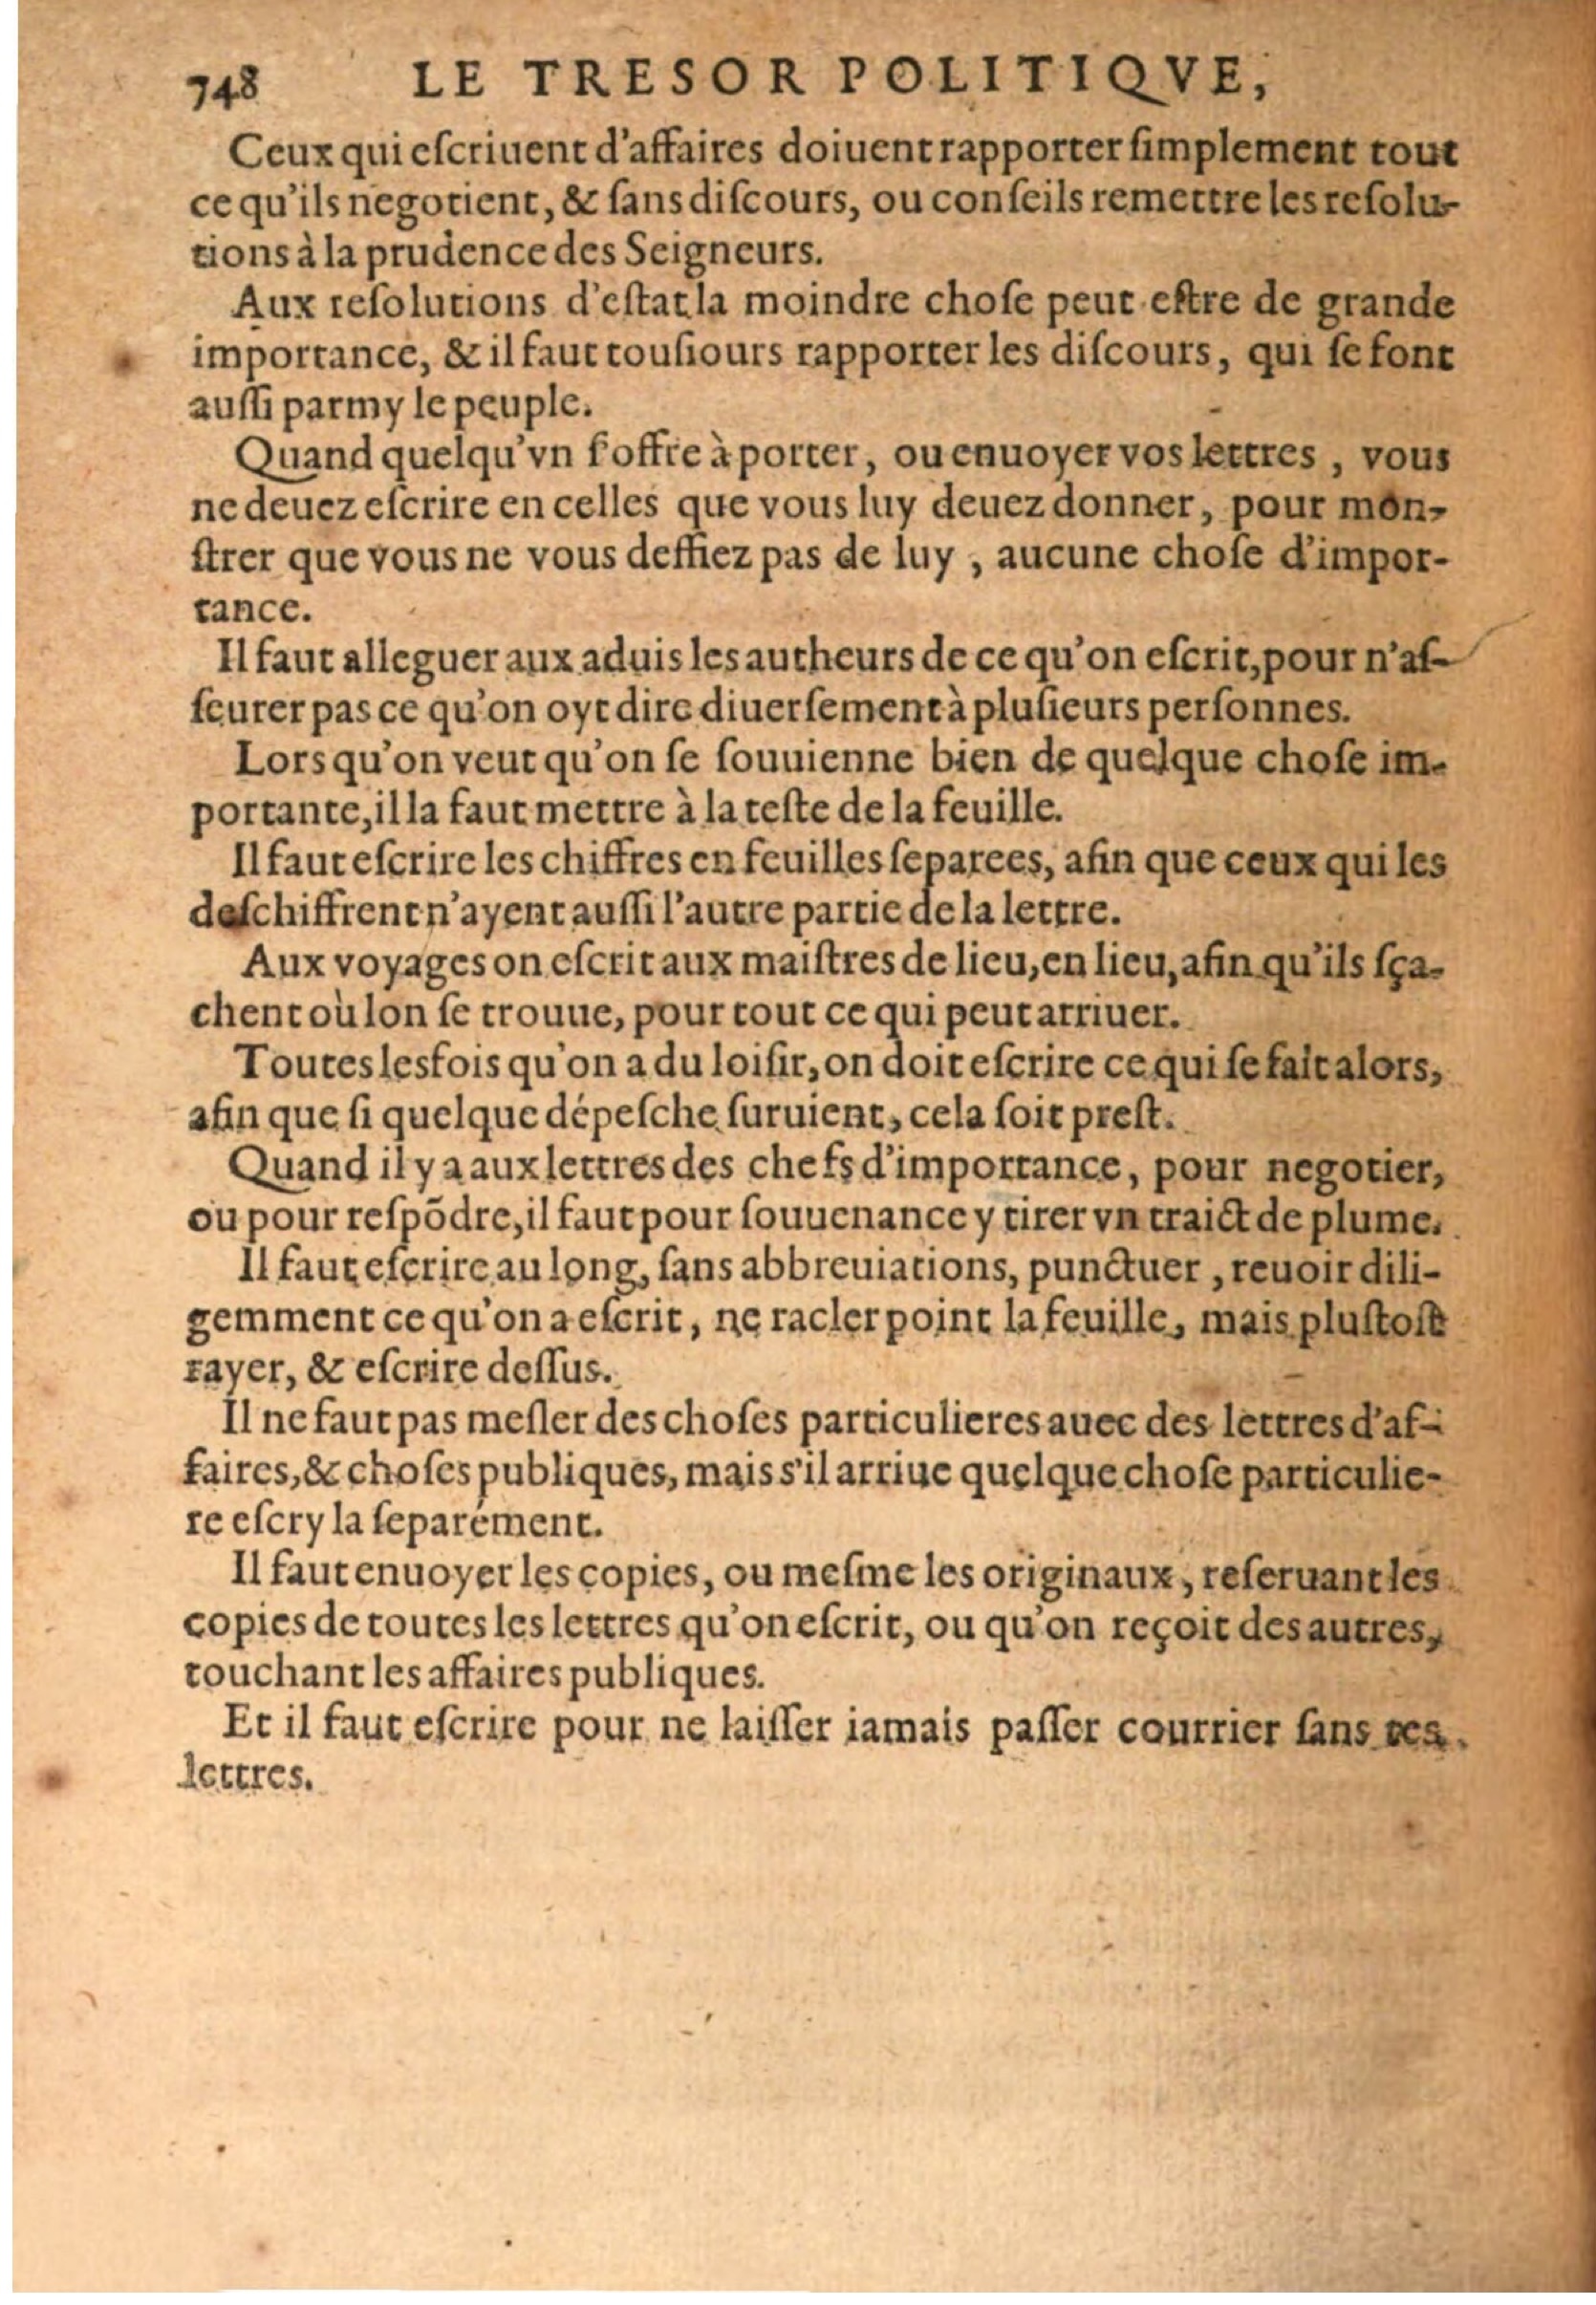 748 LE TRESOR POLITIQVE,
Ceux qui eſcriuent d'affaires doiuent rapporter ſimplement tout
ce qu'ils negotient, & ſans diſcours, ou conſeils remettre les reſolu-
tions à la prudence des Seigneurs.
Aux reſolutions d'eſtat la moindre choſe peut eſtre de grande
importance, & il faut touſiours rapporter les diſcours, qui ſe font
auſſi parmy le peuple.
Quand quelqu'vn ſ'offre à porter, ou enuoyer vos lettres, vous
ne deuez eſcrire en celles que vous luy deuez donner, pour mon-
ſtrer que vous ne vous deffiez pas de luy, aucune choſe d'impor-
tance.
Il faut alleguer aux aduis les autheurs de ce qu'on eſcrit, pour n'aſ-
ſeurer pas ce qu'on oyt dire diuerſement à pluſieurs perſonnes.
Lors qu'on veut qu'on ſe ſouuienne bien de quelque choſe im-
portante, il la faut mettre à la teſte de la feuille.
Il faut eſcrire les chiffres en feuilles ſeparees, afin que ceux qui les
deſchiffrent n'ayent auſſi l'autre partie de la lettre.
Aux voyages on eſcrit aux maiſtres de lieu, en lieu, afin qu'ils ſça-
chent où lon ſe trouue, pour tout ce qui peut arriuer.
Toutes les fois qu'on a du loiſir, on doit eſcrire ce qui ſe fait alors,
afin que ſi quelque dépeſche ſuruient, cela ſoit preſt.
Quand il y a aux lettres des chefs d'importance, pour negotier,
ou pour reſpõdre, il faut pour ſouuenance y tirer vn traict de plume.
Il faut eſcrire au long, ſans abbreuiations, punctuer, reuoir dili-
gemment ce qu'on a eſcrit, ne racler point la feuille, mais pluſtoſt
rayer, & eſcrire deſſus.
Il ne faut pas meſler des choſes particulieres auec des lettres d'af-
faires, & choſes publiques, mais s'il arriue quelque choſe particulie-
re eſcry la ſeparément.
Il faut enuoyer les copies, ou meſme les originaux, reſeruant les
copies de toutes les lettres qu'on eſcrit, ou qu'on reçoit des autres,
touchant les affaires publiques.
Et il faut eſcrire pour ne laiſſer iamais paſſer courrier ſans tes
lettres.